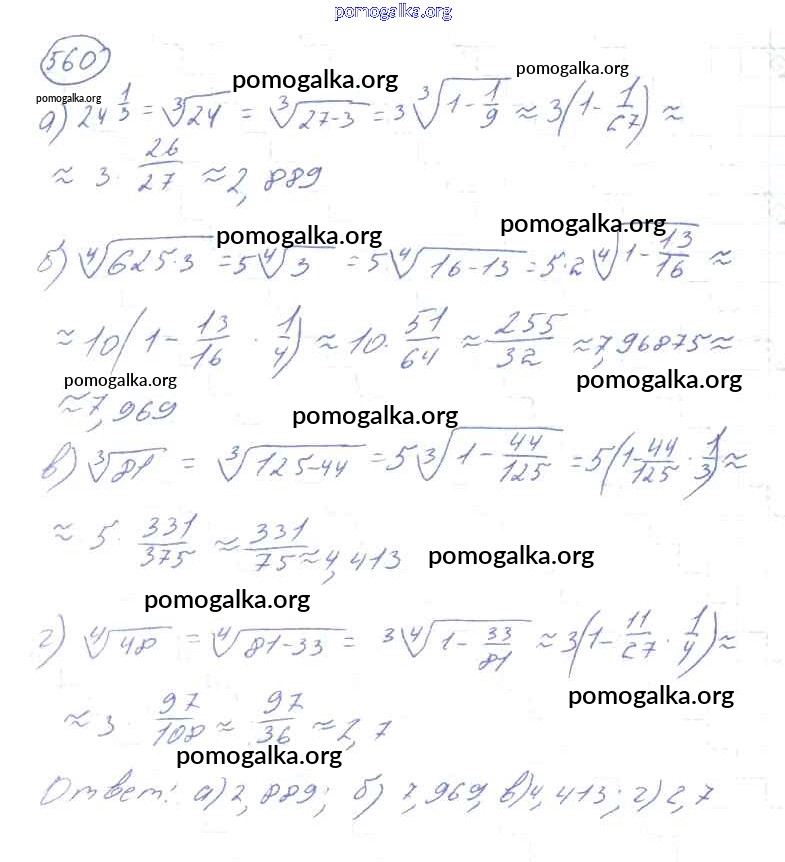 pomogalka.org
560
pomogalka.org pomogalka.org pomogalka.org
а) 24^(1/3) = ∛24 = ∛(27-3) = 3 ∛(1 - 1/9) ≈ 3(1 - 1/27) ≈
≈ 3 · 26/27 ≈ 2,889
pomogalka.org pomogalka.org
б) ∜(625·3) = 5∜3 = 5·∜(16-13) = 5·2∜(1 - 13/16) ≈
≈ 10(1 - 13/16 · 1/4) ≈ 10 · 51/64 ≈ 255/32 ≈ 7,96875 ≈
pomogalka.org pomogalka.org
≈ 7,969
pomogalka.org
в) ∛81 = ∛(125-44) = 5∛(1 - 44/125) = 5(1 - 44/125 · 1/3) ≈
≈ 5 · 331/375 ≈ 331/75 ≈ 4,413 pomogalka.org
pomogalka.org
г) ∜48 = ∜(81-33) = 3∜(1 - 33/81) ≈ 3(1 - 11/27 · 1/4) ≈
pomogalka.org
≈ 3 · 97/108 ≈ 97/36 ≈ 2,7
pomogalka.org
Ответ: а) 2,889; б) 7,969, в) 4,413; г) 2,7